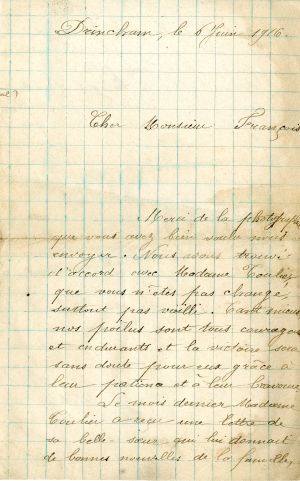 Drincham, le 6 Juin 1916.
Cher Monsieur François
Merci de la photographie
que vous avez bien voulu nous
envoyer. Nous nous trouvons
d'accord avec Madame
que vous n'êtes pas changé,
surtout pas vieilli. Tant mieux
nos poilus sont tous courageux
et endurants et la victoire sera
sans doute pour eux grâce à
leur patience et à leur bravoure
Le mois dernier Madame
a reçu une lettre de
sa belle-sœur qui lui donnait
de bonnes nouvelles de la famille,